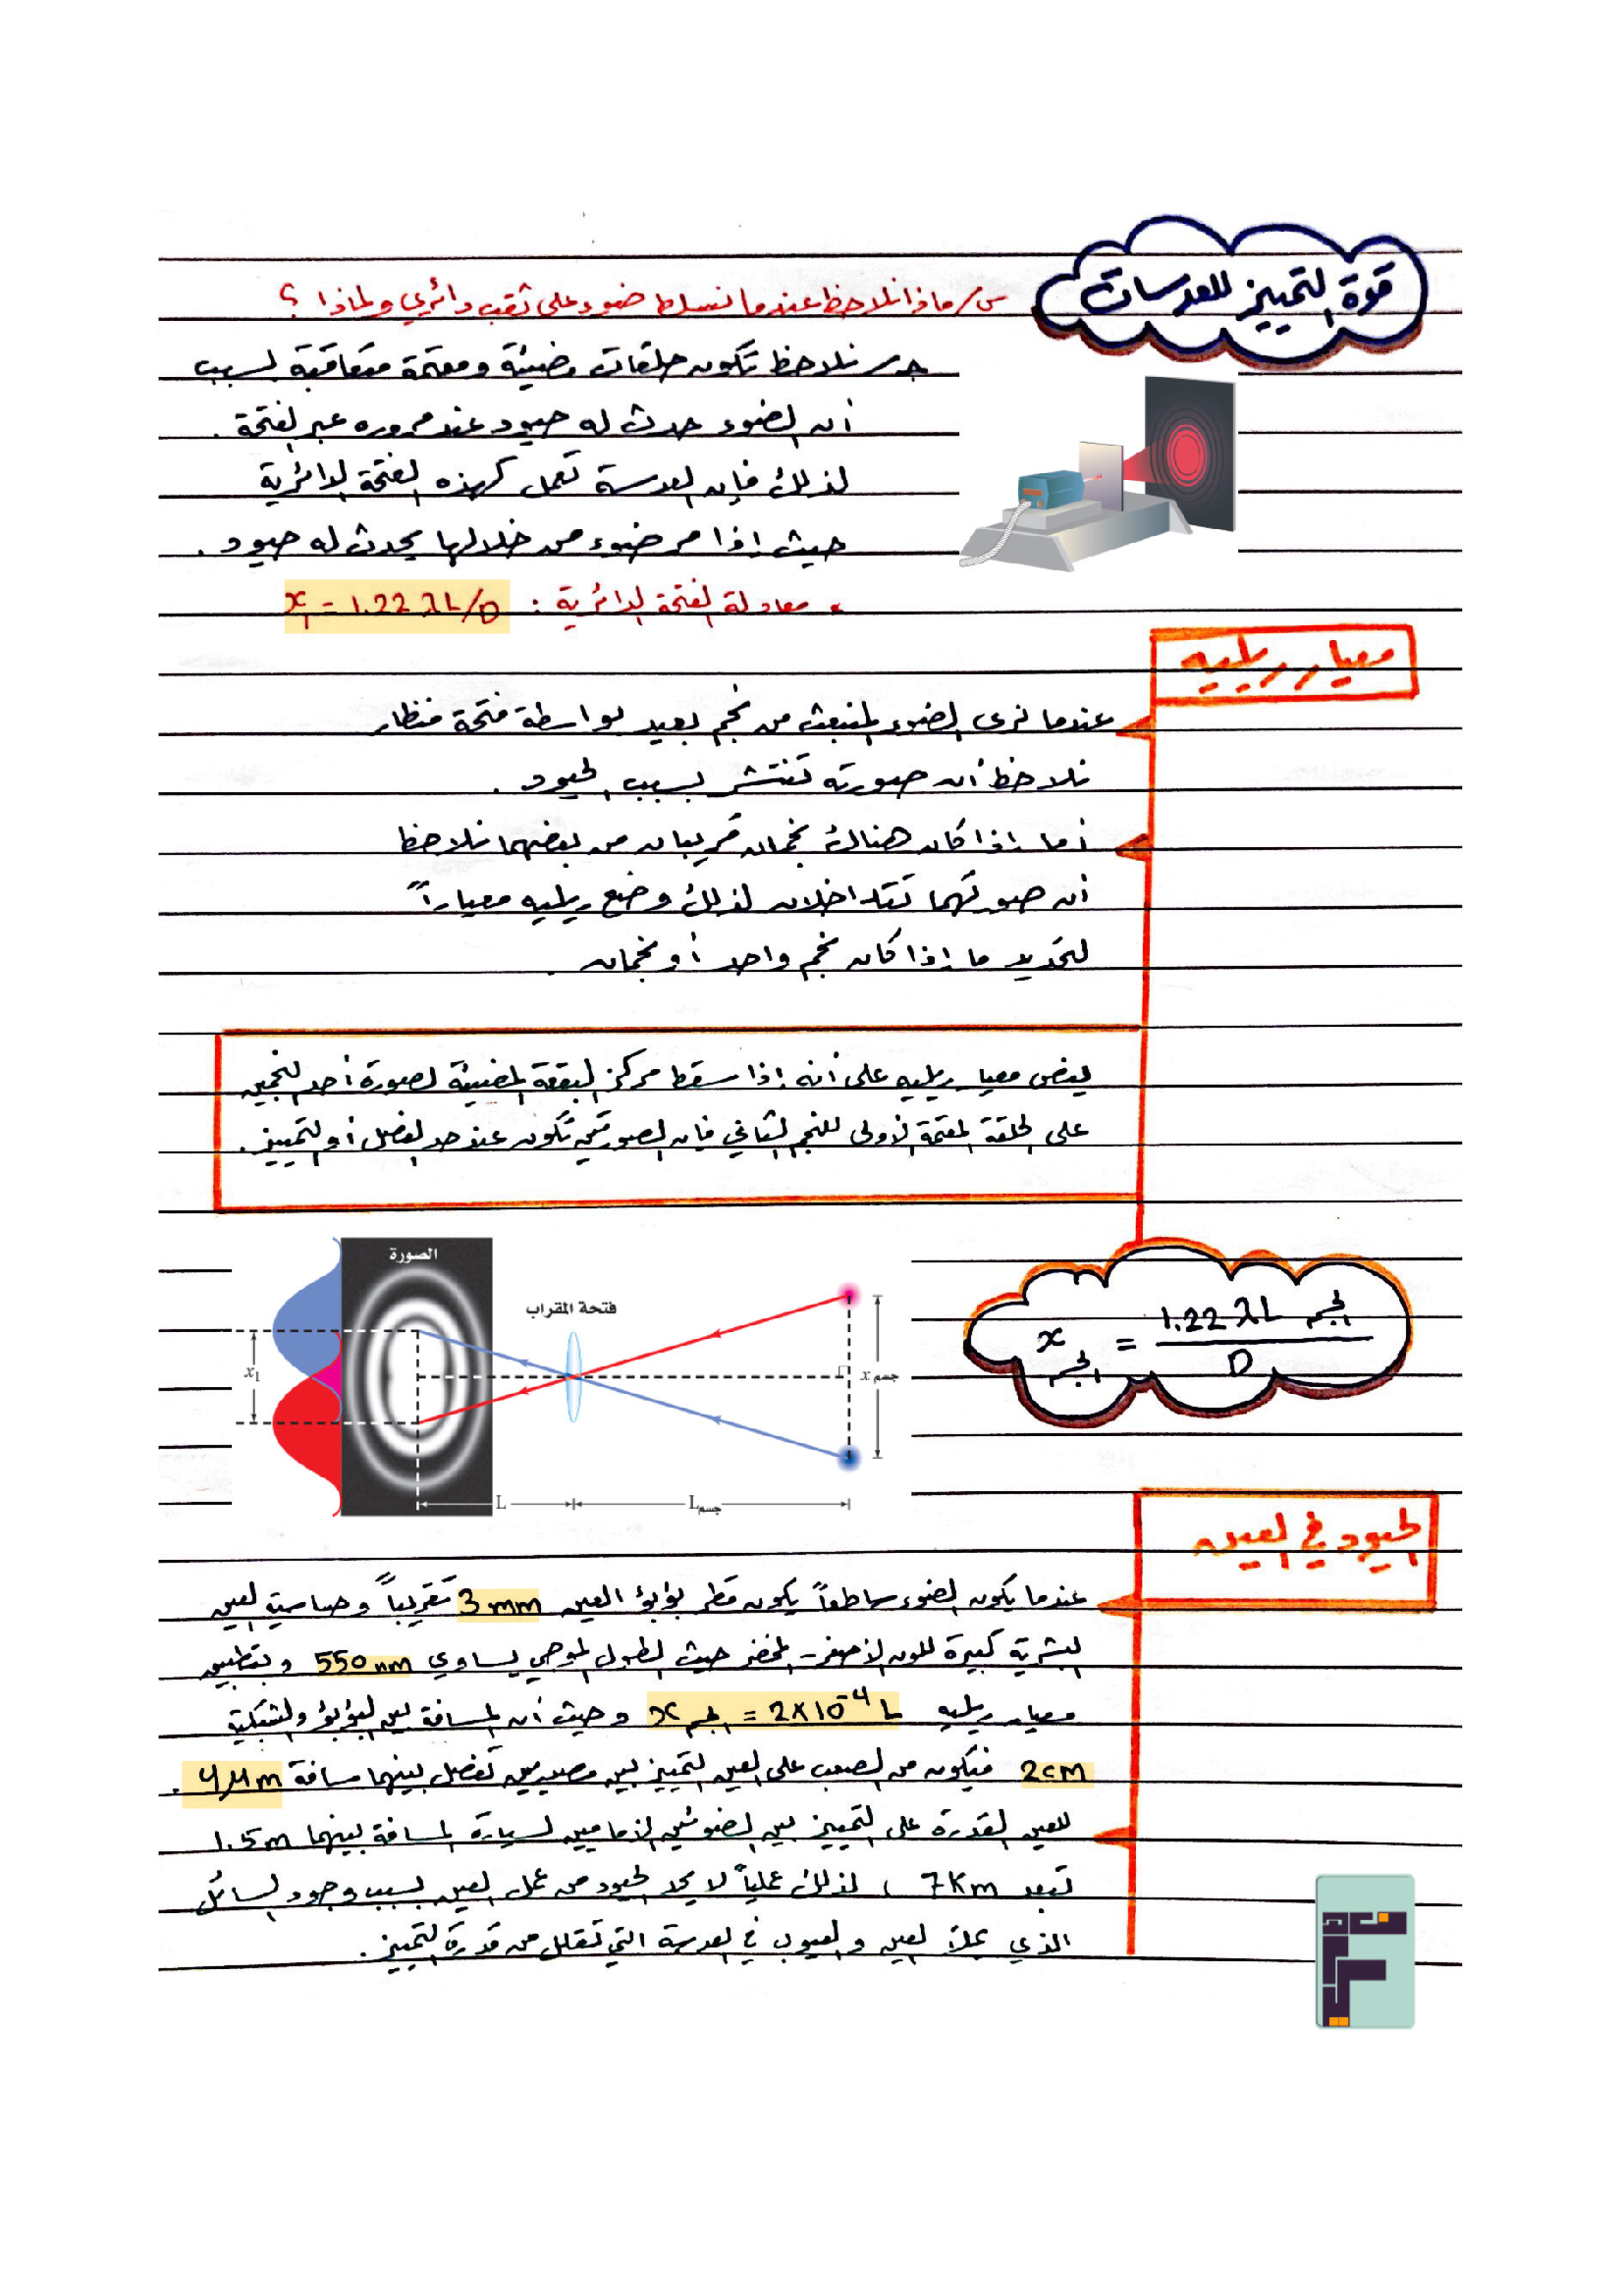 قوة التمييز للعدسات
س/ ماذا نلاحظ عندما نسلط ضوء على ثقب دائري ولماذا ؟
جـ/ نلاحظ تكون حلقات مضيئة ومعتمة متعاقبة بسبب
أن الضوء حدث له حيود عند مروره عبر الفتحة .
لذلك فإن العدسة تعمل كهذه الفتحة الدائرية
حيث إذا مر ضوء من خلالها يحدث له حيود .
معادلة الفتحة الدائرية : x₁ = 1.22 λL/D
معيار ريليه
عندما نرى الضوء المنبعث من نجم بعيد بواسطة فتحة منظار
نلاحظ أن صورته تنتشر بسبب الحيود .
أما إذا كان هنالك نجمان قريبان من بعضهما نلاحظ
أن صورتهما تتداخلان لذلك وضع ريليه معياراً
لتحديد ما إذا كان نجم واحد أو نجمان .
ينص معيار ريليه على أنه إذا سقط مركز البقعة المضيئة لصورة أحد النجمين
على الحلقة المعتمة الأولى للنجم الثاني فإن الصورتين تكون عند حد الفصل أو التمييز .
الصورة
فتحة المقراب
x₁
x جسم
L
L جسم
x الجسم = 1.22 λL الجسم / D
الحيود في العين
عندما يكون الضوء ساطعاً يكون قطر بؤبؤ العين 3mm تقريباً وحساسية العين
البشرية كبيرة للون الأصفر - المخضر حيث الطول الموجي يساوي 550 nm وبتطبيق
معيار ريليه x الجسم = 2X10⁻⁴ L وحيث أن المسافة بين البؤبؤ والشبكية
2cm فيكون من الصعب على العين التمييز بين مصدرين تفصل بينهما مسافة 4μm .
للعين القدرة على التمييز بين الضوئين الأماميين لسيارة المسافة بينهما 1.5m
تبعد 7Km ، لذلك عملياً لا يحد الحيود من عمل العين بسبب وجود السائل
الذي يملأ العين والعيوب في العدسة التي تقلل من قدرة التمييز .